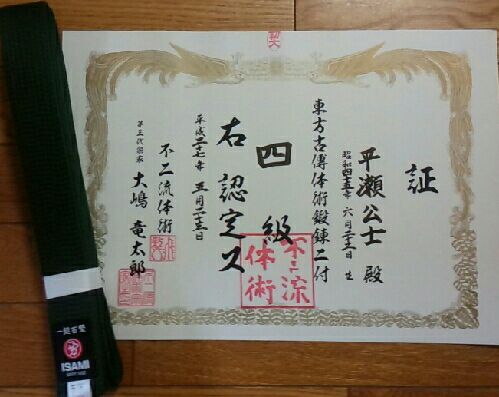 証
平瀬公士 殿
昭和四五年 六月二十三日 生
東方古傳体術鍛錬ニ付
四級
右認定ス
平成二十七年 三月二十三日
不二流体術
第三代宗家 大嶋 竜太郎
不二流
体術
一鎧百撃
ISAMI